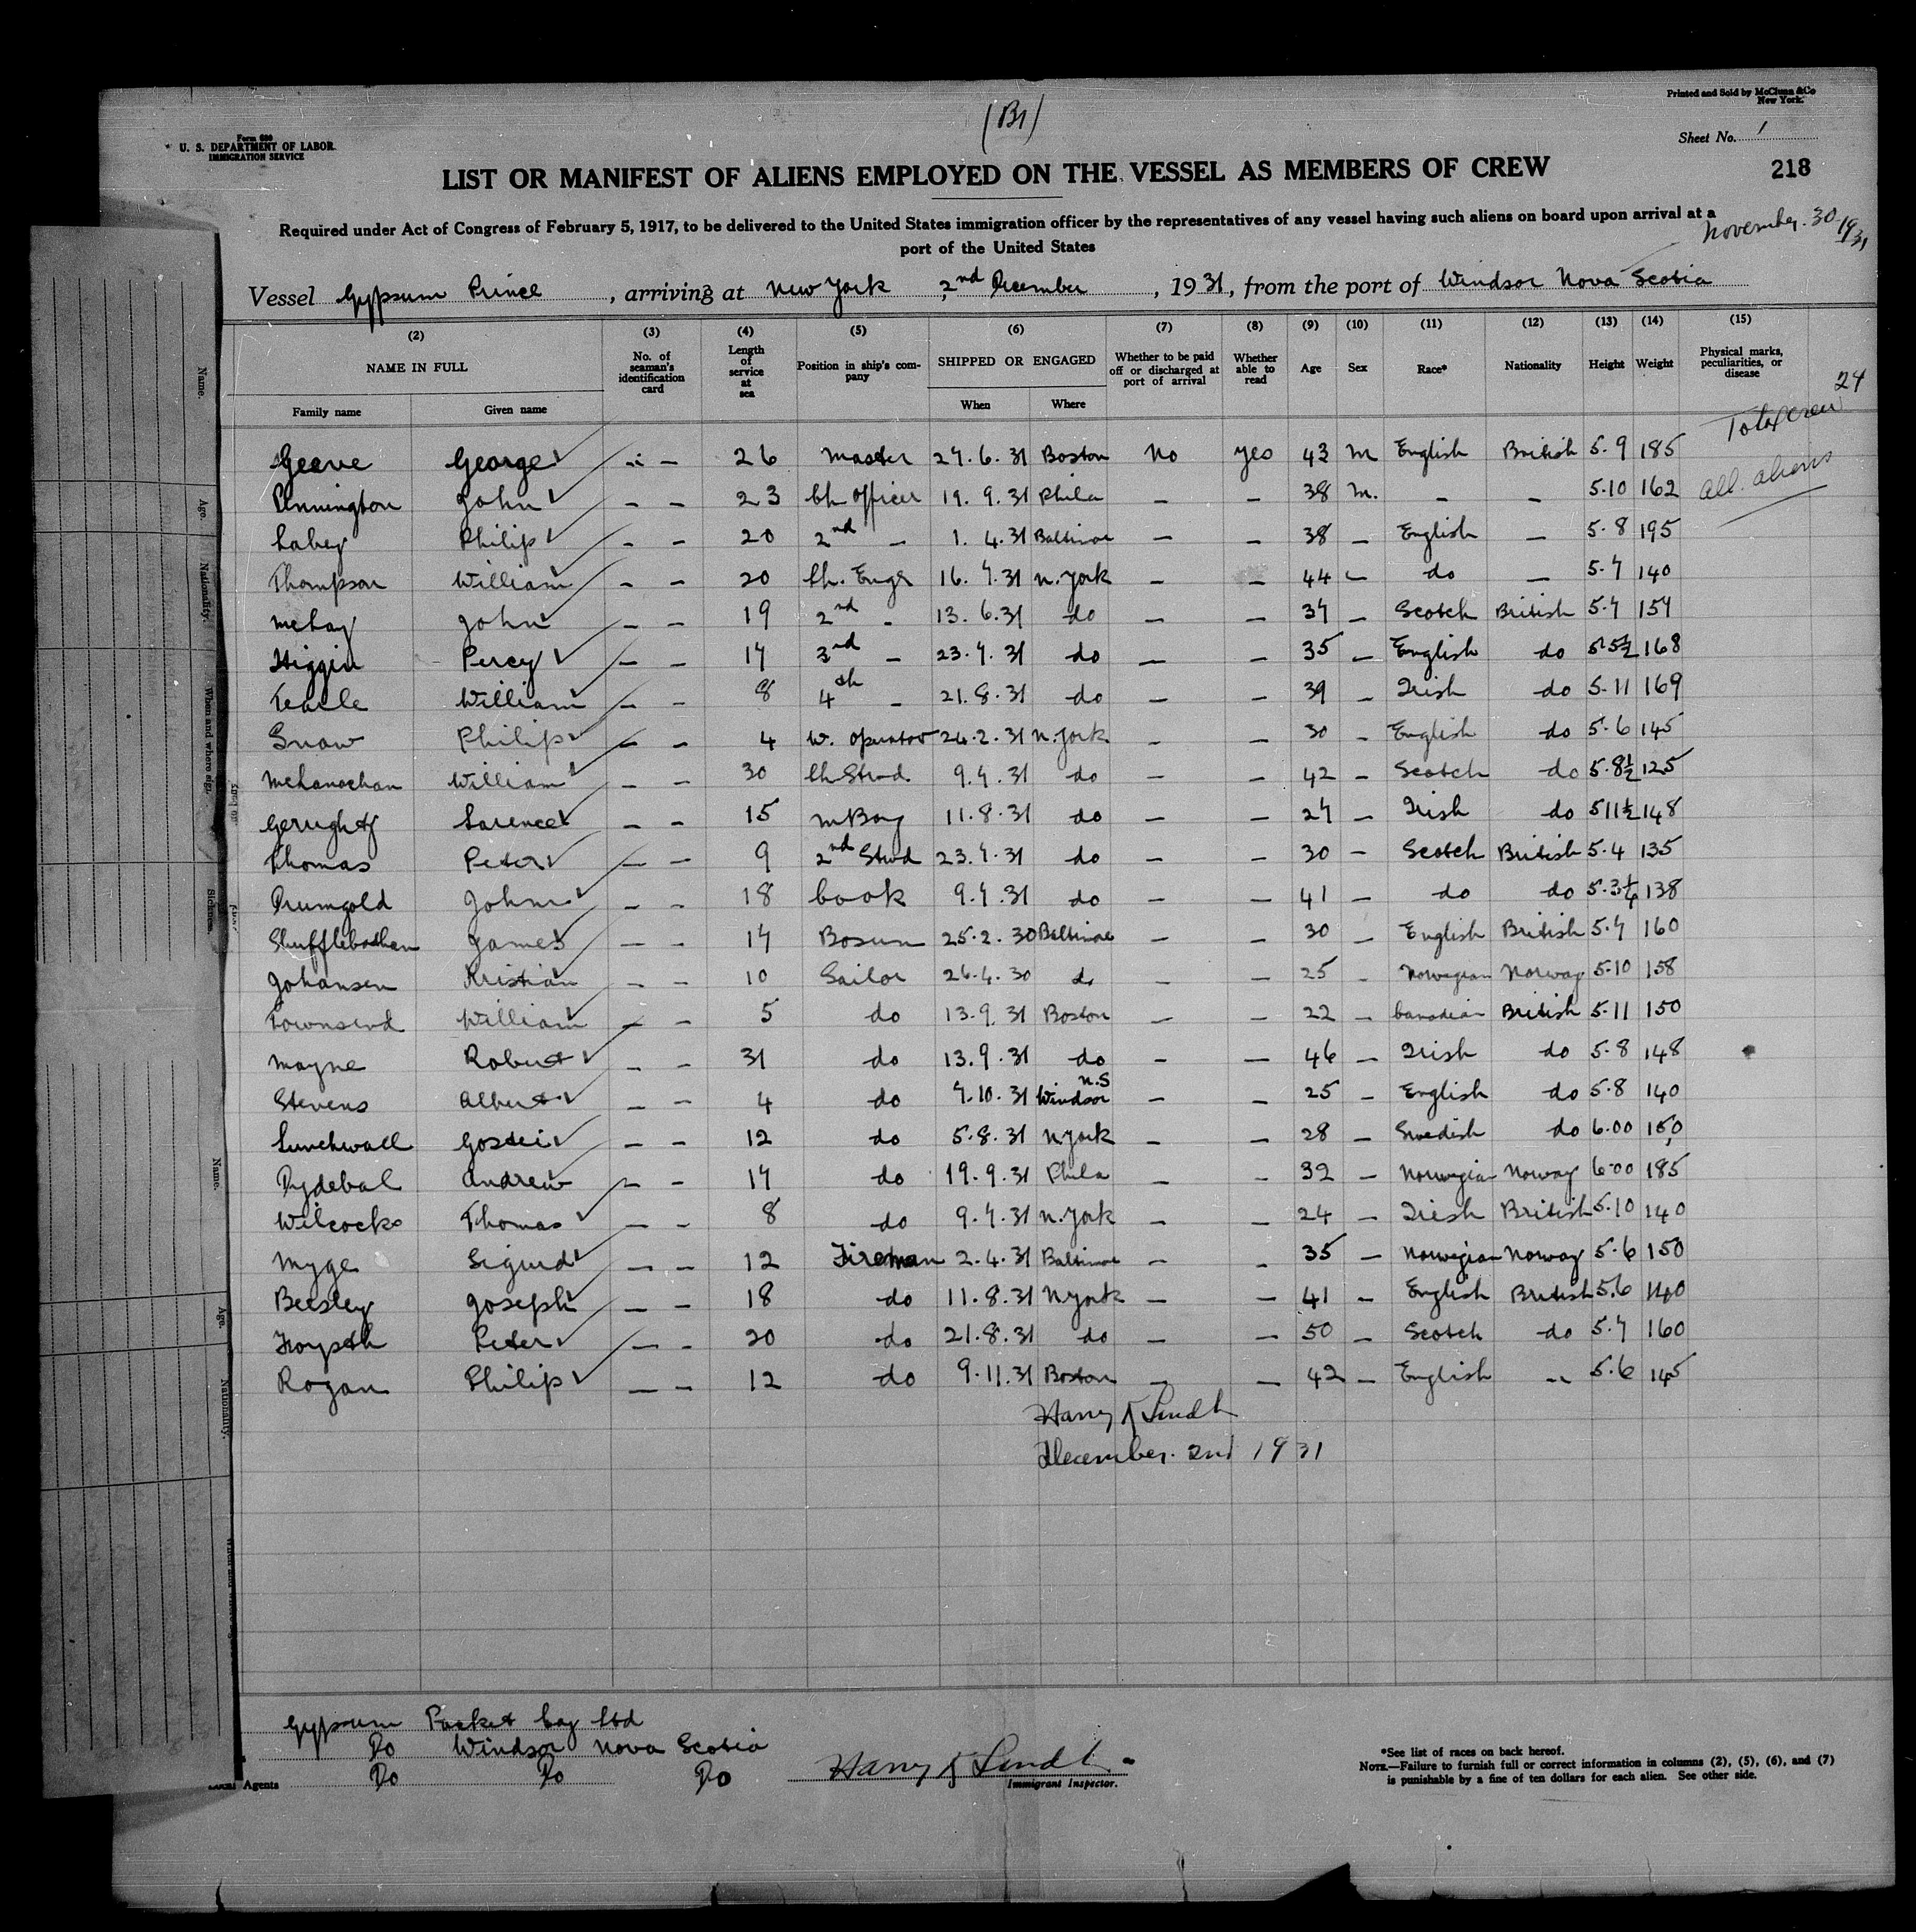 (B1)
Printed and Sold by McClunn & Co
New York.
Form 680
U. S. DEPARTMENT OF LABOR
IMMIGRATION SERVICE
Sheet No. 1
LIST OR MANIFEST OF ALIENS EMPLOYED ON THE VESSEL AS MEMBERS OF CREW
218
Required under Act of Congress of February 5, 1917, to be delivered to the United States immigration officer by the representatives of any vessel having such aliens on board upon arrival at a
port of the United States
November. 30 1931
Vessel Gypsum Prince, arriving at New York 2nd December, 1931, from the port of Windsor Nova Scotia
(2) (3) (4) (5) (6) (7) (8) (9) (10) (11) (12) (13) (14) (15)
NAME IN FULL No. of seaman's identification card Length of service at sea Position in ship's company SHIPPED OR ENGAGED Whether to be paid off or discharged at port of arrival Whether able to read Age Sex Race* Nationality Height Weight Physical marks, peculiarities, or disease
Family name Given name When Where
24
Total crew
all aliens
George - 26 Master 27.6.31 Boston No yes 43 M English British 5.9 185
Pennington John - - 23 Ch Officer 19.9.31 Phila - - 38 M. - - 5.10 162
Labey Philip - - 20 2nd - 1.4.31 Baltimore - - 38 - English - 5.8 195
Thompson William - - 20 Ch. Engr 16.7.31 N. York - - 44 - do - 5.7 140
John - - 19 2nd - 13.6.31 do - - 37 - Scotch British 5.7 157
Higgin Percy - - 17 3rd - 23.7.31 do - - 35 - English do 5.5½ 168
Tearle William - - 8 4th - 21.8.31 do - - 39 - Irish do 5.11 169
Snow Philip - - 4 W. Operator 24.2.31 N. York - - 30 - English do 5.6 145
William - - 30 Ch Stwd. 9.7.31 do - - 42 - Scotch do 5.8½ 125
Gerughty - - 15 M Boy 11.8.31 do - - 27 - Irish do 5 11½ 148
Thomas Peter - - 9 2nd Stwd 23.7.31 do - - 30 - Scotch British 5.4 135
Drumgold John - - 18 Cook 9.7.31 do - - 41 - do do 138
Shufflebotham James - - 17 Bosun 25.2.30 Baltimore - - 30 - English British 5.7 160
Johansen Kristian - - 10 Sailor 26.4.30 do - - 25 - Norwegian Norway 5.10 158
Townsend William - - 5 do 13.9.31 Boston - - 22 - Canadian British 5.11 150
Mayne Robert - - 31 do 13.9.31 do - - 46 - Irish do 5.8 148
Stevens Albert - - 4 do 7.10.31 Windsor N.S - - 25 - English do 5.8 140
Gostei - - 12 do 5.8.31 N York - - 28 - Swedish do 6.00 150
Rydebal Andrew - - 17 do 19.9.31 Phila - - 32 - Norwegian Norway 6.00 185
Wilcocks Thomas - - 8 do 9.7.31 N. York - - 24 - Irish British 5.10 140
Myge Sigurd - - 12 Fireman 2.4.31 Baltimore - - 35 - Norwegian Norway 5.6 150
Beesley Joseph - - 18 do 11.8.31 N York - - 41 - English British 5.6 140
Peter - - 20 do 21.8.31 do - - 50 - Scotch do 5.7 160
Rogan Philip - - 12 do 9.11.31 Boston - - 42 - English " 5.6 145
Harry
December. 2nd 1931
Gypsum Packet Coy Ltd
Do Windsor Nova Scotia
Do Do Do
Agents
Harry
Immigrant Inspector.
*See list of races on back hereof.
NOTE.—Failure to furnish full or correct information in columns (2), (5), (6), and (7)
is punishable by a fine of ten dollars for each alien. See other side.
Name.
Age.
Nationality.
When and where sign.
Sickness.
Name.
Age.
Nationality.